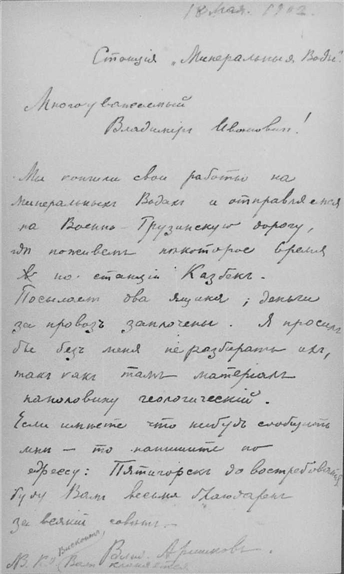 18 мая. 1902.
Станція „Минеральныя Воды"
Многоуважаемый
Владиміръ Ивановичъ!
Мы кончили свои работы на
Минеральныхъ Водахъ и отправляемся
на Военно-Грузинскую дорогу,
гдѣ поживемъ нѣкоторое время
на станціи Казбекъ.
Посылаемъ два ящика; деньги
за провозъ заплочены. Я просилъ
бы безъ меня не разбирать ихъ,
такъ какъ тамъ матеріалъ
наполовину геологическій.
Если имѣете что нибудь сообщить
мнѣ – то напишите по
адресу: Пятигорскъ до востребованія
буду Вамъ весьма благодаренъ
за всякій совѣтъ.
Влад. Аршиновъ.
Вамъ кланяется